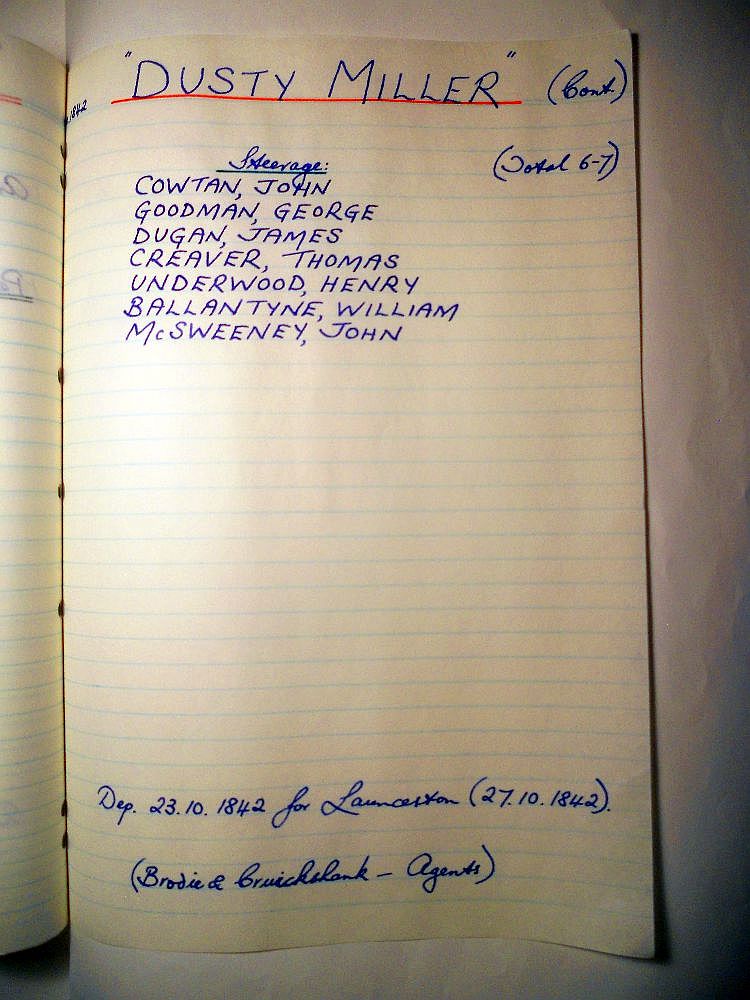 "DUSTY MILLER" (Cont.)
Steerage: (Total 6-7)
COWTAN, JOHN
GOODMAN, GEORGE
DUGAN, JAMES
CREAVER, THOMAS
UNDERWOOD, HENRY
BALLANTYNE, WILLIAM
McSWEENEY, JOHN
Dep. 23.10.1842 for Launceston (27.10.1842).
(Brodie & Cruickshank – Agents)